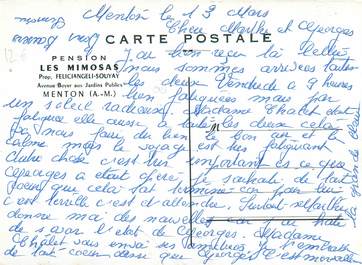 Menton le 13 Mars
Chers Marthe et Georges
CARTE POSTALE
PENSION
LES MIMOSAS
Prop. FELICIANGELI-SOUYAY
Avenue Boyer aux Jardins Publics
MENTON (A.-M.)
J'ai bien reçu ta lettre
nous sommes arrivées toutes
les deux Vendredi à 9 heures
bien fatiguées mais par
un soleil radieux, Madame Chalet était
fatiguée elle aussi toutes les deux cela
va nous faire du bien bon air et
calme mais le voyage est très fatiguant
autre chose c'est très important est ce que
Georges a était opéré, je souhaite de tout
coeur que cela soit terminé car pour lui
c'est terrible c'est d'attendre. Surtout Marthe
donne moi des nouvelles car j'ai hâte
de savoir l'état de Georges. Madame
Chalet vous envoi ses amitiés j'embrasse
de tout coeur